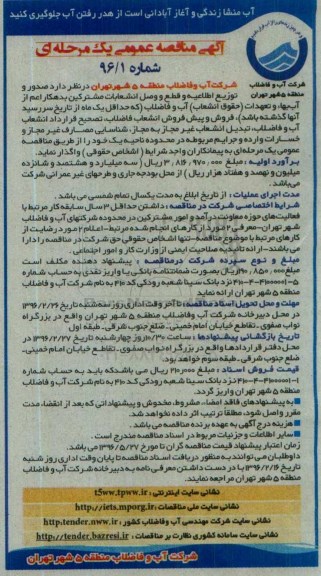 آب منشا زندگی و آغاز آبادانی است از هدر رفتن آب جلوگیری کنید
آگهی مناقصه عمومی یک مرحله ای
شماره ۹۶/۱
شرکت آب و فاضلاب
منطقه ۵ شهر تهران
شرکت آب وفاضلاب منطقه ۵ شهر تهران در نظر دارد صدور و
توزیع اطلاعیه و قطع و وصل انشعابات مشترکین بدهکار اعم از
آب بها، و تعهدات (حقوق انشعاب) آب و فاضلاب (که حداقل یک ماه از تاریخ سررسید
آنها گذشته باشد)، فروش و پیش فروش انشعاب فاضلاب، تصحیح قرارداد انشعاب
آب و فاضلاب، تبدیل انشعاب غیر مجاز به مجاز، شناسایی مصارف غیر مجاز و
خسارات وارده و جرایم مربوطه در محدوده ناحیه یک خود را از طریق مناقصه
عمومی یک مرحله ای به پیمانکاران واجد شرایط (اشخاص حقوقی) واگذار نماید.
برآورد اولیه: مبلغ ۳٫۸۱۶٫۹۷۰٫۰۰۰ ریال (سه میلیارد و هشتصد و شانزده
میلیون و نهصد و هفتاد هزار ریال) از محل بودجه جاری و طرحهای غیر عمرانی شرکت
می باشد.
مدت اجرای عملیات: از تاریخ ابلاغ به مدت یکسال تمام شمسی می باشد.
شرایط اختصاصی شرکت در مناقصه: داشتن حداقل ۳ سال سابقه کار مرتبط با
فعالیت های حوزه معاونت درآمد و امور مشترکین در محدوده شرکتهای آب و فاضلاب
شهر تهران-معرفی ۲ مورد از کارهای انجام شده مرتبط-اعلام ۲ مورد رضایت از
کارهای مرتبط با موضوع مناقصه-تنها اشخاص حقوقی حق شرکت در مناقصه را دارا
می باشند-ارائه تائیدیه صلاحیت ایمنی از وزارت کار و امور اجتماعی.
مبلغ و نوع سپرده شرکت درمناقصه: پیشنهاد دهنده مکلف است
ریال بصورت ضمانتنامه بانکی یا واریز نقدی به حساب شماره
نزد بانک سینا شعبه رودکی کد ۴۱۰ به نام شرکت آب و فاضلاب
منطقه ۵ شهر تهران ارائه نماید
مهلت و محل تحویل اسناد مناقصه: تا آخر وقت اداری روز سه شنبه تاریخ ۱۳۹۶/۲/۲۶
در محل دبیرخانه شرکت آب و فاضلاب منطقه ۵ شهر تهران واقع در بزرگراه
نواب صفوی- تقاطع خیابان امام خمینی- ضلع جنوب شرقی- طبقه اول
تاریخ بازگشائی پیشنهادها: ساعت ۱۰/۳۰ روز چهارشنبه تاریخ ۱۳۹۶/۲/۲۷ در
محل دفتر قراردادها واقع در بزرگراه نواب صفوی، تقاطع خیابان امام خمینی-
ضلع جنوب شرقی- طبقه سوم خواهد بود.
قیمت فروش اسناد: مبلغ ۲۱۰٫۰۰۰ ریال می باشد که باید به حساب شماره
نزد بانک سینا شعبه رودکی کد ۴۱۰ به نام شرکت آب و فاضلاب
منطقه ۵ شهر تهران واریز گردد.
به پیشنهادهای فاقد امضاء، مشروط، مخدوش و پیشنهاداتی که بعد از انقضاء مدت
مقرر واصل شود، مطلقا ترتیب اثر داده نخواهد شد.
هزینه درج آگهی به عهده برنده مناقصه می باشد.
سایر اطلاعات و جزئیات مربوط در اسناد مناقصه مندرج است.
زمان اعتبار پیشنهاد قیمت مناقصه گران تا مورخ ۱۳۹۶/۵/۲۷ می باشد
داوطلبان می توانند به منظور دریافت اسناد مناقصه تا پایان وقت اداری روز شنبه
تاریخ ۱۳۹۶/۲/۱۶ با در دست داشتن معرفی نامه به دبیرخانه شرکت آب و فاضلاب
منطقه ۵ شهر تهران مراجعه نمایند.
نشانی سایت اینترنتی: t5ww.tpww.ir
نشانی سایت ملی مناقصات: http://iets.mporg.ir
نشانی سایت شرکت مهندسی آب وفاضلاب کشور: http:tender.nww.ir
نشانی سایت سامانه کشوری نظارت بر مناقصات: http://tender.bazresi.ir
شرکت آب و فاضلاب منطقه ۵ شهر تهران